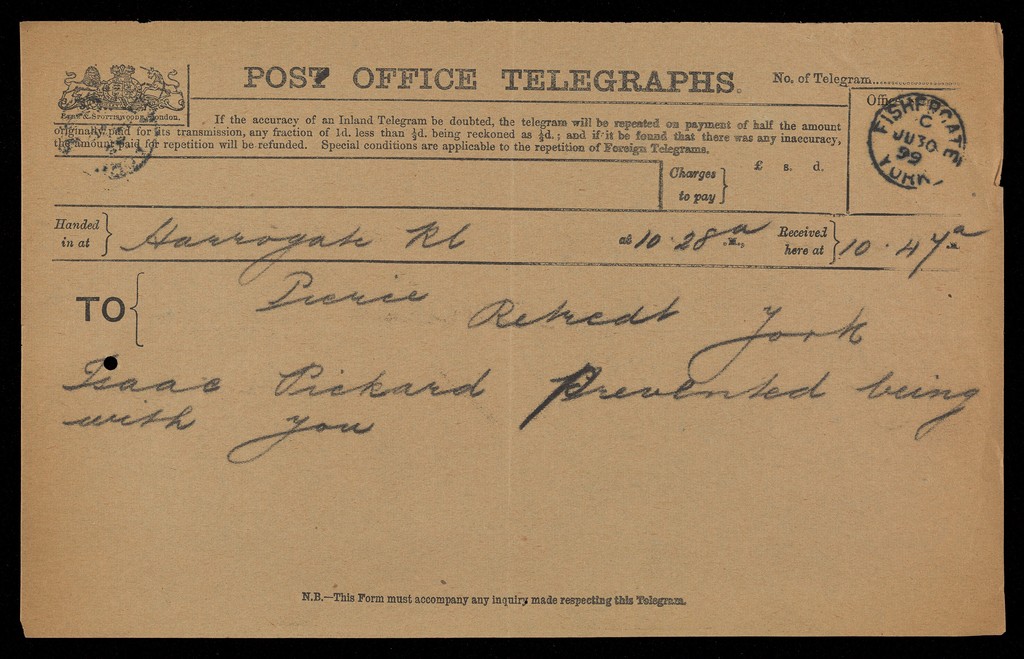 POST OFFICE TELEGRAPHS.
No. of Telegram
EYRE & SPOTTISWOODE, London.
If the accuracy of an Inland Telegram be doubted, the telegram will be repeated on payment of half the amount
originally paid for its transmission, any fraction of 1d. less than ½d. being reckoned as ½d.; and if it be found that there was any inaccuracy,
the amount paid for repetition will be refunded. Special conditions are applicable to the repetition of Foreign Telegrams.
FISHERGATE
C
JU 30
99
YORK
Charges to pay } £ s. d.
Handed in at } Harrogate at 10.28 a M., Received here at } 10.47 a M.
TO { Pierce Retreat York
Isaac Pickard Prevented being
with you
N.B.—This Form must accompany any inquiry made respecting this Telegram.